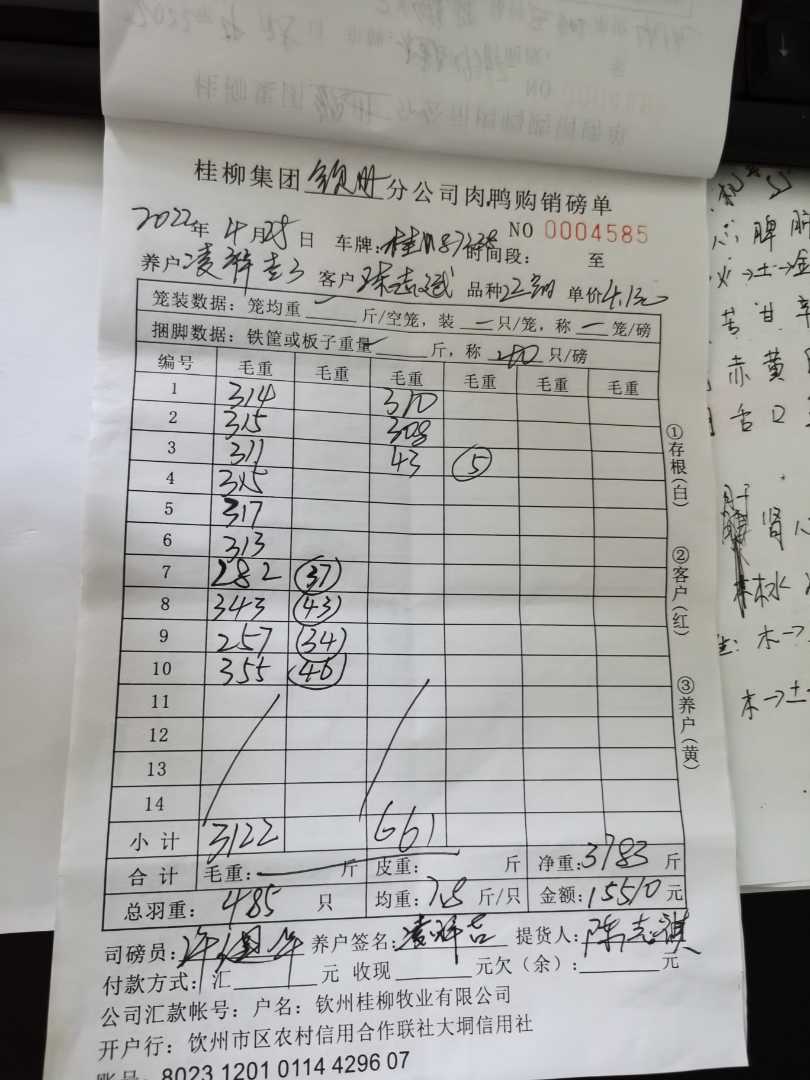 桂柳集团钦州分公司肉鸭购销磅单
NO 0004585
2022年4月28日 车牌:桂 时间段: 至
养户 凌 客户 陈志 品种 单价4.1元
笼装数据: 笼均重 斤/空笼, 装 一 只/笼, 称 一 笼/磅
捆脚数据: 铁筐或板子重量 斤, 称 40 只/磅
编号 毛重 毛重 毛重 毛重 毛重 毛重
1 314 310
2 315 308
3 311 43 5
4 315
5 317
6 313
7 282 37
8 343 43
9 257 34
10 355 46
11
12
13
14
小计 3122 661
合计 毛重: 斤 皮重: 斤 净重:3783 斤
总羽重: 485 只 均重:7.8 斤/只 金额:15510元
司磅员: 养户签名: 凌 提货人: 陈志
付款方式: 汇 元 收现 元欠(余): 元
公司汇款帐号: 户名: 钦州桂柳牧业有限公司
开户行: 钦州市区农村信用合作联社大垌信用社
账号: 8023 1201 0114 4296 07
①存根(白)
②客户(红)
③养户(黄)
脾
火→土→金
苦 甘 辛
赤 黄
舌 口
肾
木→
木→土